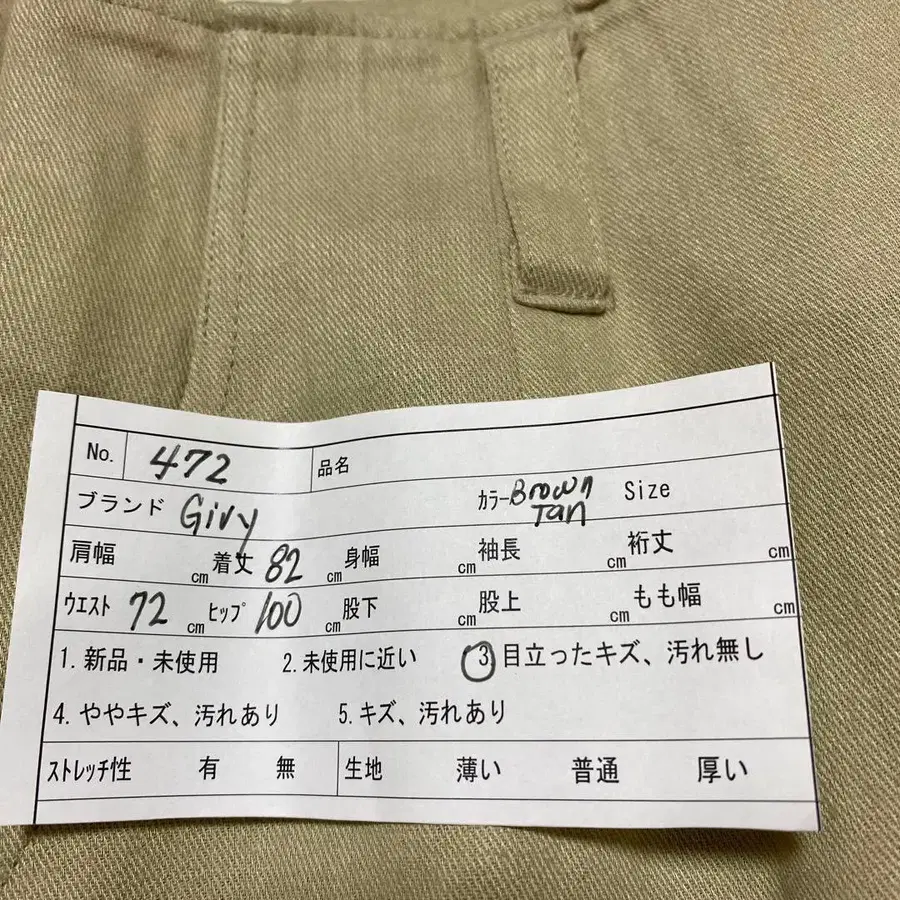 No. 472 品名
ブランド Givy カラー Brown Tan Size
肩幅 cm 着丈 82 cm 身幅 cm 袖長 cm 裄丈 cm
ウエスト 72 cm ヒップ 100 cm 股下 cm 股上 cm もも幅 cm
1. 新品・未使用 2. 未使用に近い 3. 目立ったキズ、汚れ無し
4. ややキズ、汚れあり 5. キズ、汚れあり
ストレッチ性 有 無 生地 薄い 普通 厚い